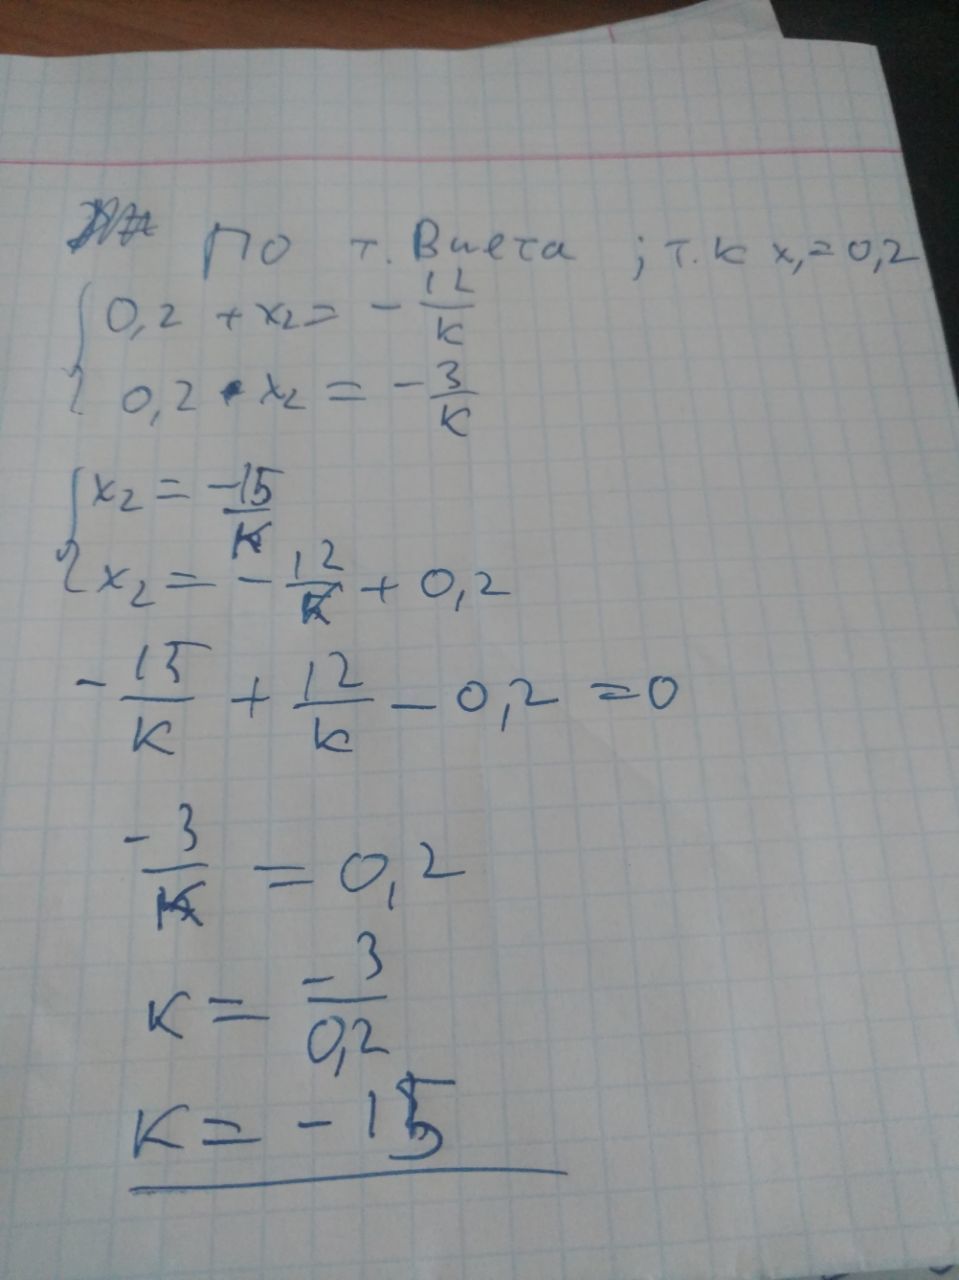 По т. Виета ; т.к x₁=0,2
0,2 + x₂ = - 12/к
0,2 • x₂ = - 3/к
x₂ = -15/к
x₂ = - 12/к + 0,2
- 15/к + 12/к - 0,2 = 0
-3/к = 0,2
к = -3/0,2
к = -15